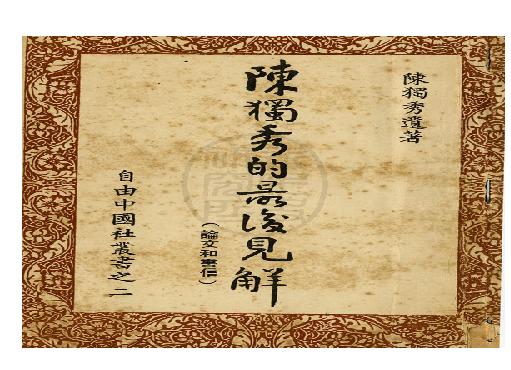 陳獨秀遺著
陳獨秀的最後見解
(論文和書信)
自由中國社叢書之二